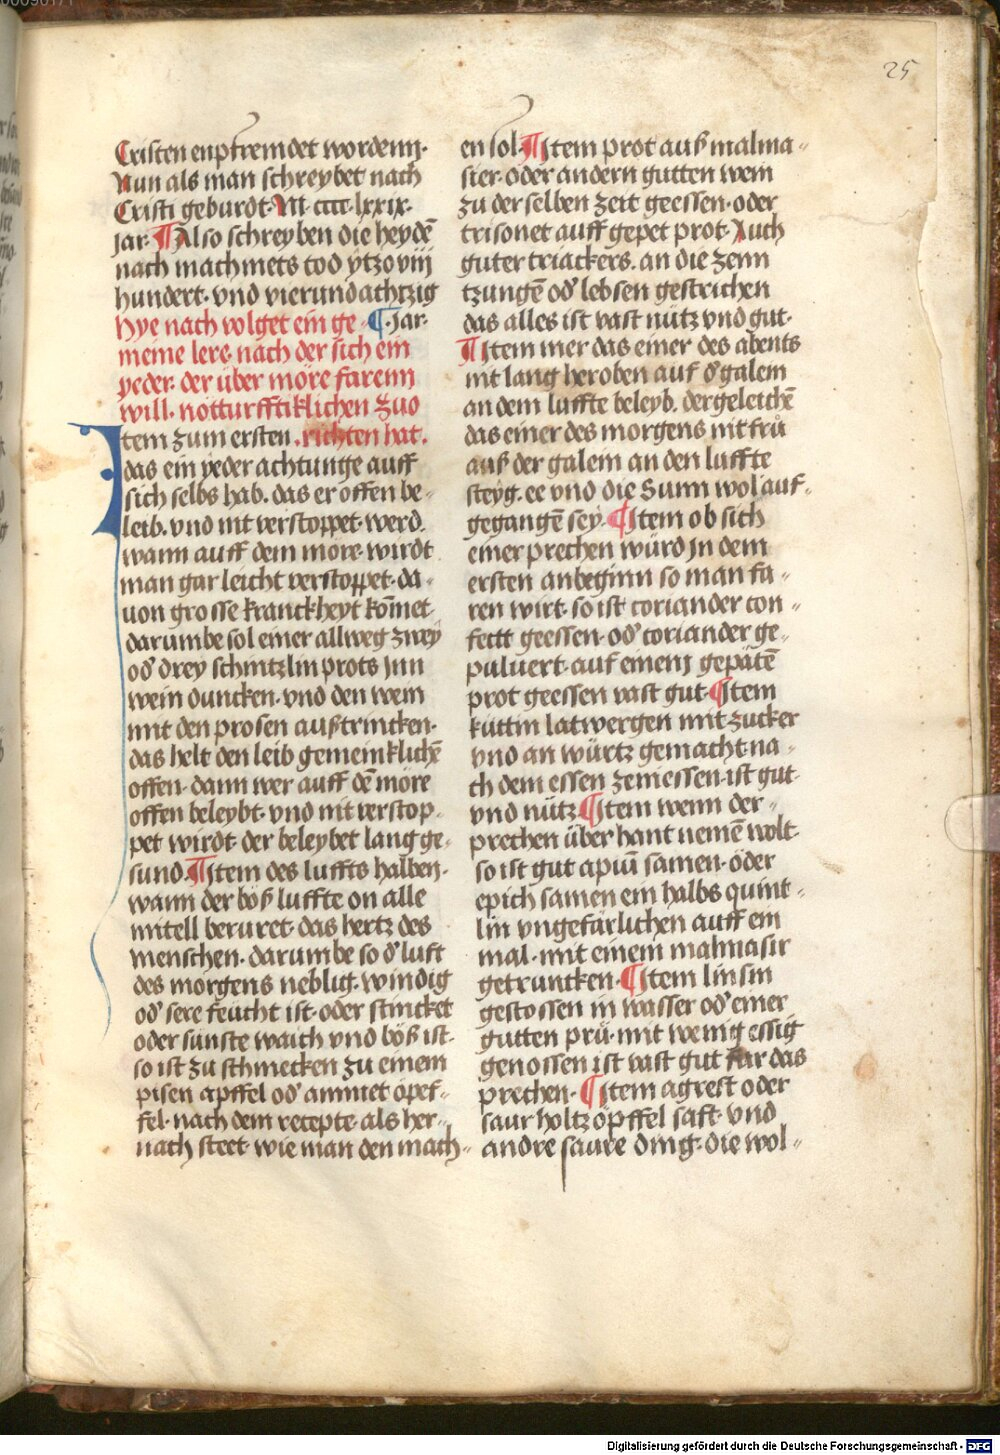 25
Cristen enpfremdet wordenn·
Nun als man schreybet nach
Cristi geburdt· M· cccc· lxxix·
jar· ¶ Also schreyben die heydē
nach machmets tod ytzo viij
hundert· vnd vierundachtzig
Hye nach volget ein ge· ¶· Jar·
meine lere· nach der sich ein
yeder· der über möre farenn
will· notturfftiklichen zuo
Item zum ersten ·richten hat·
das ein yeder achtunge auff
sich selbs hab· das er offen be-
leib· vnd nit verstoppet werd·
wann auff dem möre· wirdt
man gar leicht verstoppet· da-
uon grosse kranckheyt kōmet·
darumbe sol einer allweg zwey
od' drey schnitzlin prots inn
wein duncken· vnd den wein
mit den prosen außtrincken·
das helt den leib gemeinklichē
offen· dann wer auff dē möre
offen beleybt· vnd nit verstop-
pet wirdt· der beleybet lang ge-
sund· ¶ Item des luffts halben·
wann der böß luffte on alle
mitell beruret· das hertz des
menschen· darumbe so d' luft
des morgens neblig· windig
od' sere feucht ist· oder stincket
oder sunste waich vnd böß ist·
so ist zu schmecken zu einem
pisen apffel od' ammet öpef-
fel· nach dem recepte· als her-
nach steet· wie man den mach-
en sol· ¶ Item prot auß malma-
sier· oder andern gutten wein
zu der selben zeit geessen· oder
trisonet auff gepet prot· Auch
guter triackers· an die zenn
tzungē od' lebsen gestrichen
das alles ist vast nütz vnd gut·
¶ Item mer das einer des abents
nit lang heroben auf d' galem
an dem luffte beleyb· dergeleichē
das einer des morgens nit frů
auß der galem an den luffte
steyg· ee vnd die Sunn wol auf-
gegangē sey· ¶ Item ob sich
einer prechen würd jn dem
ersten anbeginn so man fa-
ren wirt· so ist coriander con-
fectt geessen· od' coriander ge-
puluert· auf einem gepäten
prot geessen vast gut· ¶ Item
küttin latwergen mit zucker
vnd an würtz gemacht· na-
ch dem essen zeniessen· ist gut
vnd nütz ¶ Item wenn der-
prechen über hant nemē wolt·
so ist gut apiū samen· oder
epich samen ein halbs quint-
lin vngefarlichen auff ein
mal· mit einem malmasir
getruncken· ¶ Item linsin
gestossen in wasser od' einer
gutten prü· mit wenig essig
genossen ist vast gut für das
prechen· ¶ Item agrest oder
saur holtz öpffel saft· vnd
andre saure ding· die wol-
Digitalisierung gefördert durch die Deutsche Forschungsgemeinschaft - DFG